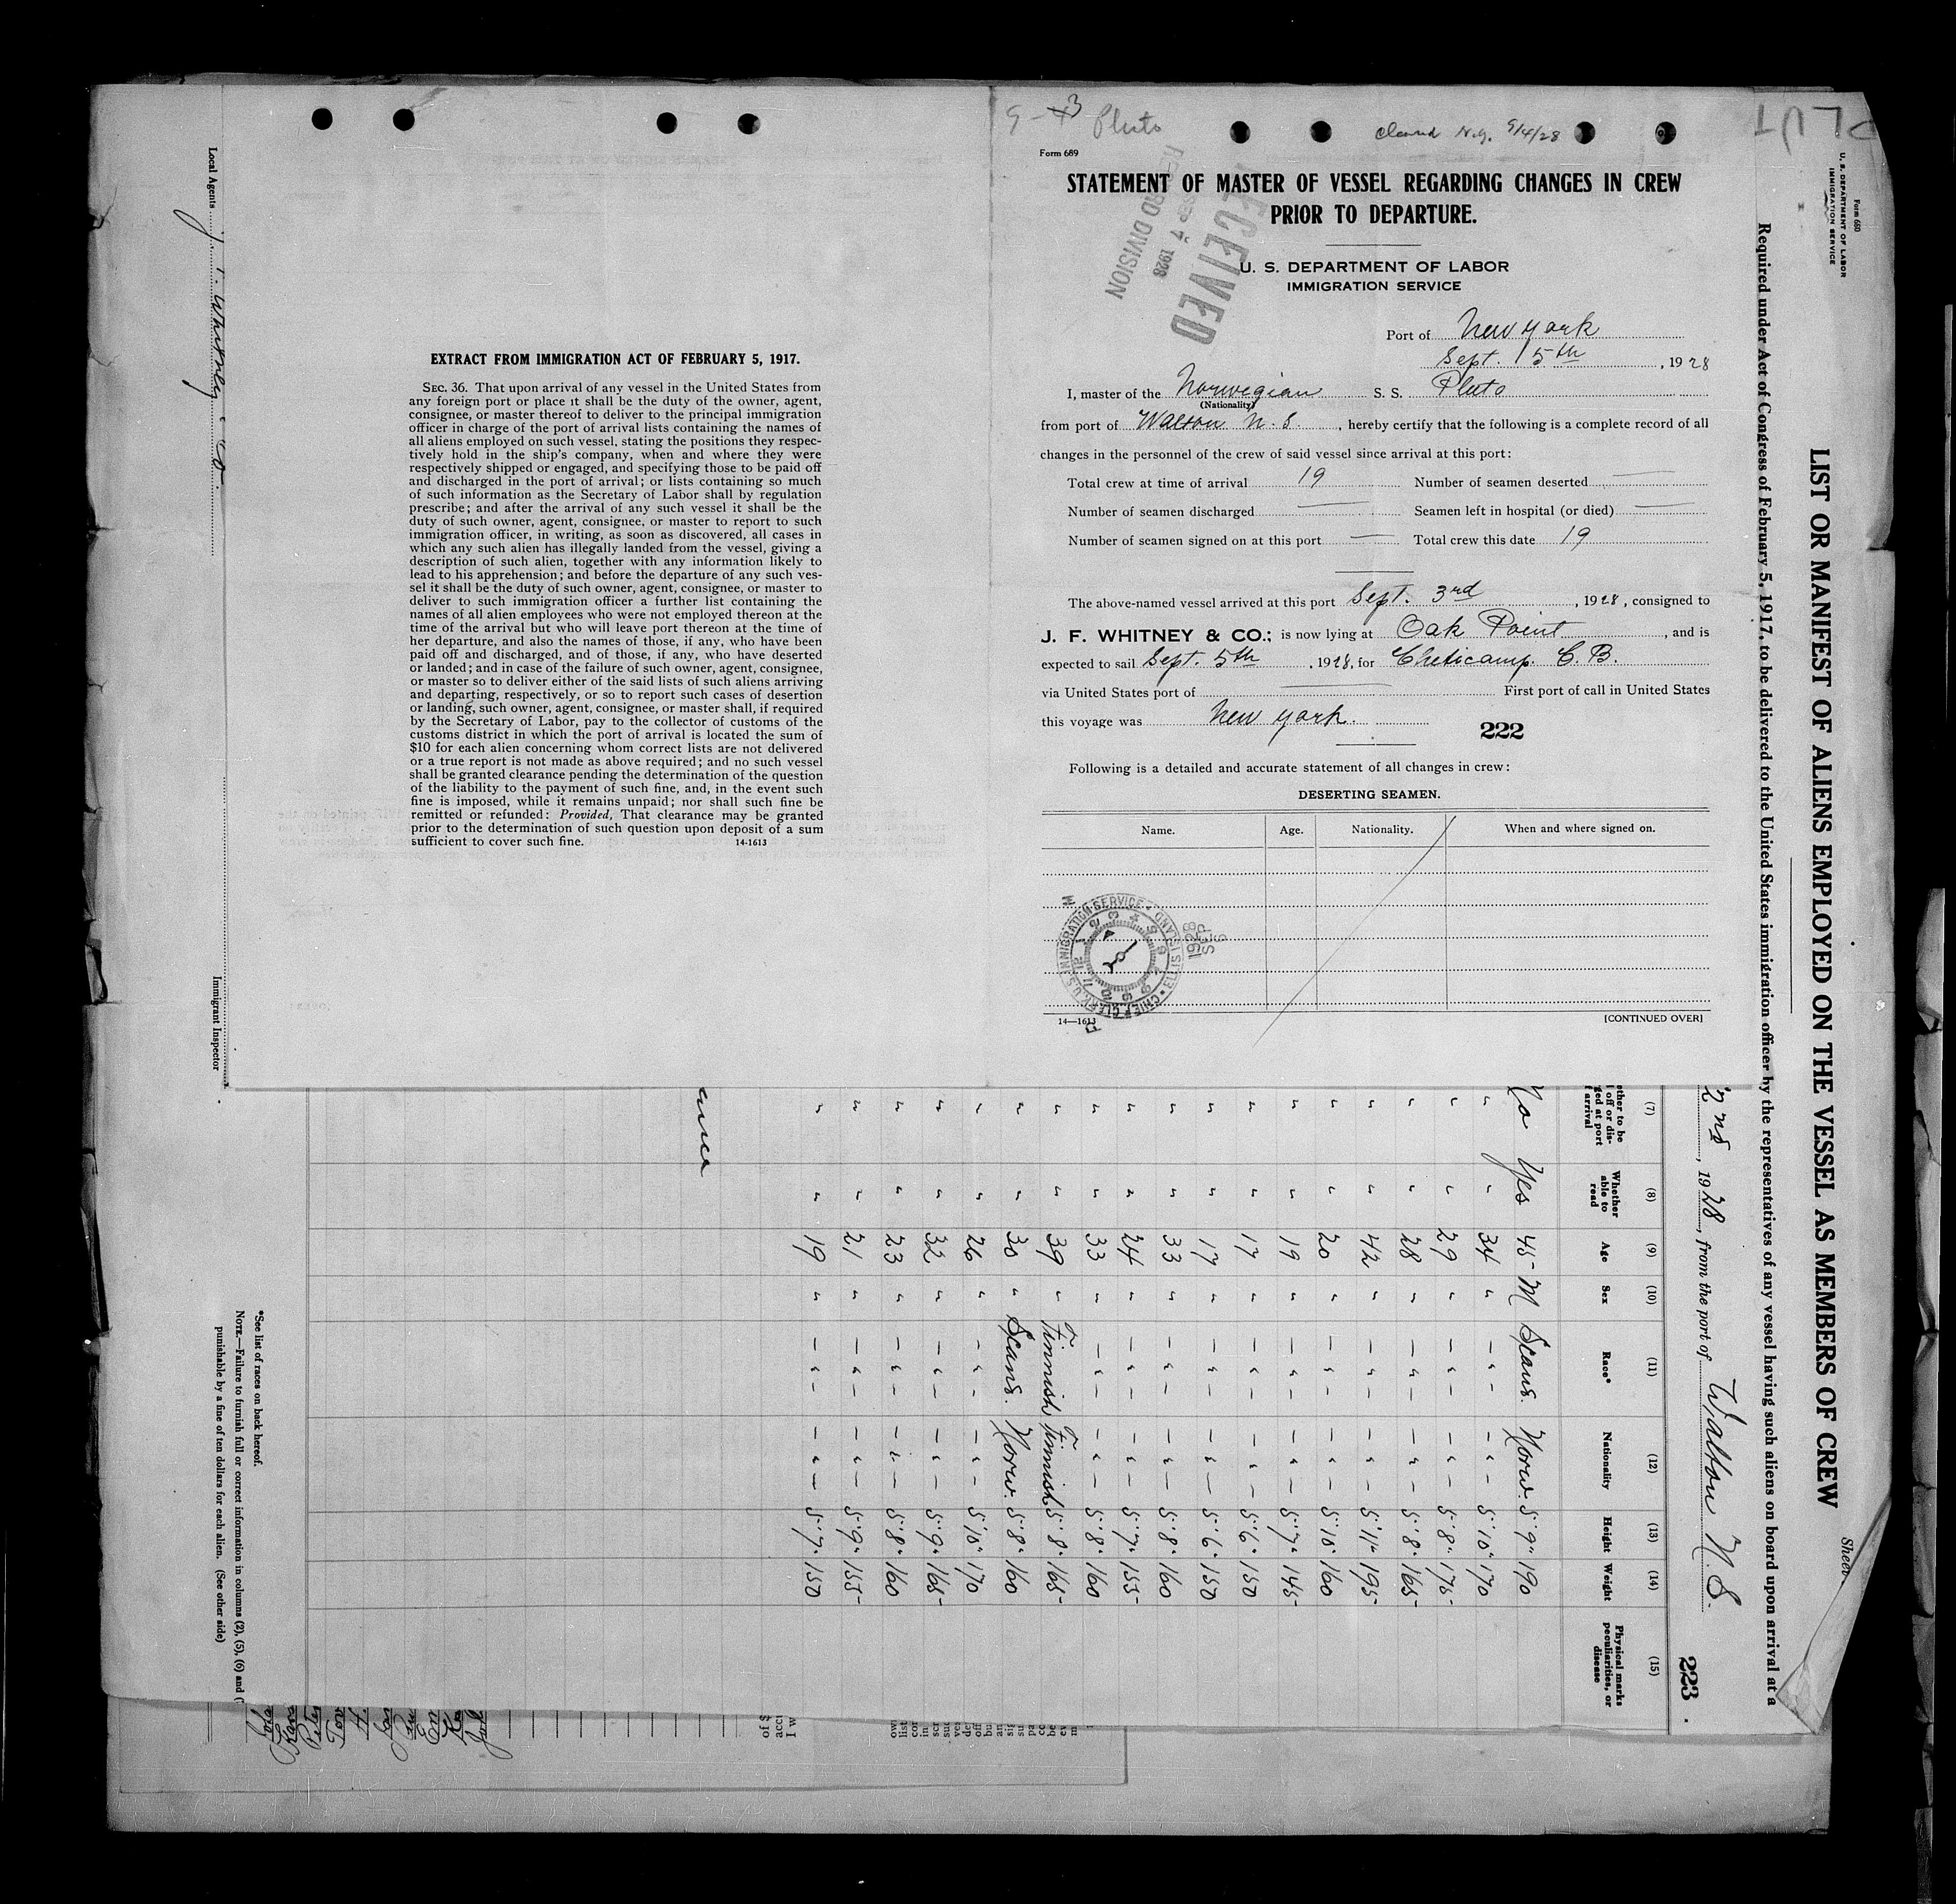 9-3 Pluto
cleared N.Y. 9/4/28
Form 689
STATEMENT OF MASTER OF VESSEL REGARDING CHANGES IN CREW
PRIOR TO DEPARTURE.
RECEIVED
SEP 7 1928
RECORD DIVISION
U. S. DEPARTMENT OF LABOR
IMMIGRATION SERVICE
Port of New York
Sept. 5th, 1928
I, master of the Norwegian S. S. Pluto
(Nationality)
from port of Walton N. S., hereby certify that the following is a complete record of all
changes in the personnel of the crew of said vessel since arrival at this port:
Total crew at time of arrival 19 Number of seamen deserted —
Number of seamen discharged — Seamen left in hospital (or died) —
Number of seamen signed on at this port — Total crew this date 19
The above-named vessel arrived at this port Sept. 3rd, 1928, consigned to
J. F. WHITNEY & CO.; is now lying at Oak Point, and is
expected to sail Sept. 5th, 1928, for Cheticamp. C. B.
via United States port of — First port of call in United States
this voyage was New York.
222
Following is a detailed and accurate statement of all changes in crew:
DESERTING SEAMEN.
Name. Age. Nationality. When and where signed on.
U.S. IMMIGRATION SERVICE • ELLIS ISLAND • CHIEF CLERK
1928
SEP
5
14—1613
[CONTINUED OVER]
EXTRACT FROM IMMIGRATION ACT OF FEBRUARY 5, 1917.
SEC. 36. That upon arrival of any vessel in the United States from
any foreign port or place it shall be the duty of the owner, agent,
consignee, or master thereof to deliver to the principal immigration
officer in charge of the port of arrival lists containing the names of
all aliens employed on such vessel, stating the positions they respec-
tively hold in the ship's company, when and where they were
respectively shipped or engaged, and specifying those to be paid off
and discharged in the port of arrival; or lists containing so much
of such information as the Secretary of Labor shall by regulation
prescribe; and after the arrival of any such vessel it shall be the
duty of such owner, agent, consignee, or master to report to such
immigration officer, in writing, as soon as discovered, all cases in
which any such alien has illegally landed from the vessel, giving a
description of such alien, together with any information likely to
lead to his apprehension; and before the departure of any such ves-
sel it shall be the duty of such owner, agent, consignee, or master to
deliver to such immigration officer a further list containing the
names of all alien employees who were not employed thereon at the
time of the arrival but who will leave port thereon at the time of
her departure, and also the names of those, if any, who have been
paid off and discharged, and of those, if any, who have deserted
or landed; and in case of the failure of such owner, agent, consignee,
or master so to deliver either of the said lists of such aliens arriving
and departing, respectively, or so to report such cases of desertion
or landing, such owner, agent, consignee, or master shall, if required
by the Secretary of Labor, pay to the collector of customs of the
customs district in which the port of arrival is located the sum of
$10 for each alien concerning whom correct lists are not delivered
or a true report is not made as above required; and no such vessel
shall be granted clearance pending the determination of the question
of the liability to the payment of such fine, and, in the event such
fine is imposed, while it remains unpaid; nor shall such fine be
remitted or refunded: Provided, That clearance may be granted
prior to the determination of such question upon deposit of a sum
sufficient to cover such fine.
14-1613
Form 680
U. S. DEPARTMENT OF LABOR
IMMIGRATION SERVICE
LIST OR MANIFEST OF ALIENS EMPLOYED ON THE VESSEL AS MEMBERS OF CREW
Sheet
Required under Act of Congress of February 5, 1917, to be delivered to the United States immigration officer by the representatives of any vessel having such aliens on board upon arrival at a
2nd, 1928, from the port of Walton N. S.
223
(7) (8) (9) (10) (11) (12) (13) (14) (15)
Whether able to read Age Sex Race* Nationality Height Weight Physical marks, peculiarities, or disease
No Yes 45 M Scans. Norw. 5'9" 190
" " 34 " — " — — " — 5'10" 170
" " 29 " — " — — " — 5'8" 175
" " 28 " — " — — " — 5'8" 165
" " 42 " — " — — " — 5'11" 195
" " 20 " — " — — " — 5'10" 160
" " 19 " — " — — " — 5'7" 145
" " 17 " — " — — " — 5'6" 150
" " 17 " — " — — " — 5'6" 150
" " 33 " — " — — " — 5'8" 160
" " 24 " — " — — " — 5'7" 155
" " 33 " — " — — " — 5'8" 160
" " 39 " Finnish Finnish 5'8" 165
" " 30 " Scans. Norw. 5'8" 160
" " 26 " — " — — " — 5'10" 170
" " 32 " — " — — " — 5'9" 165
" " 23 " — " — — " — 5'8" 160
" " 21 " — " — — " — 5'9" 155
" " 19 " — " — — " — 5'7" 150
*See list of races on back hereof.
NOTE.—Failure to furnish full or correct information in columns (2), (5), (6) and (
punishable by a fine of ten dollars for each alien. (See other side)
Local Agents J. F. Whitney & Co.
Immigrant Inspector